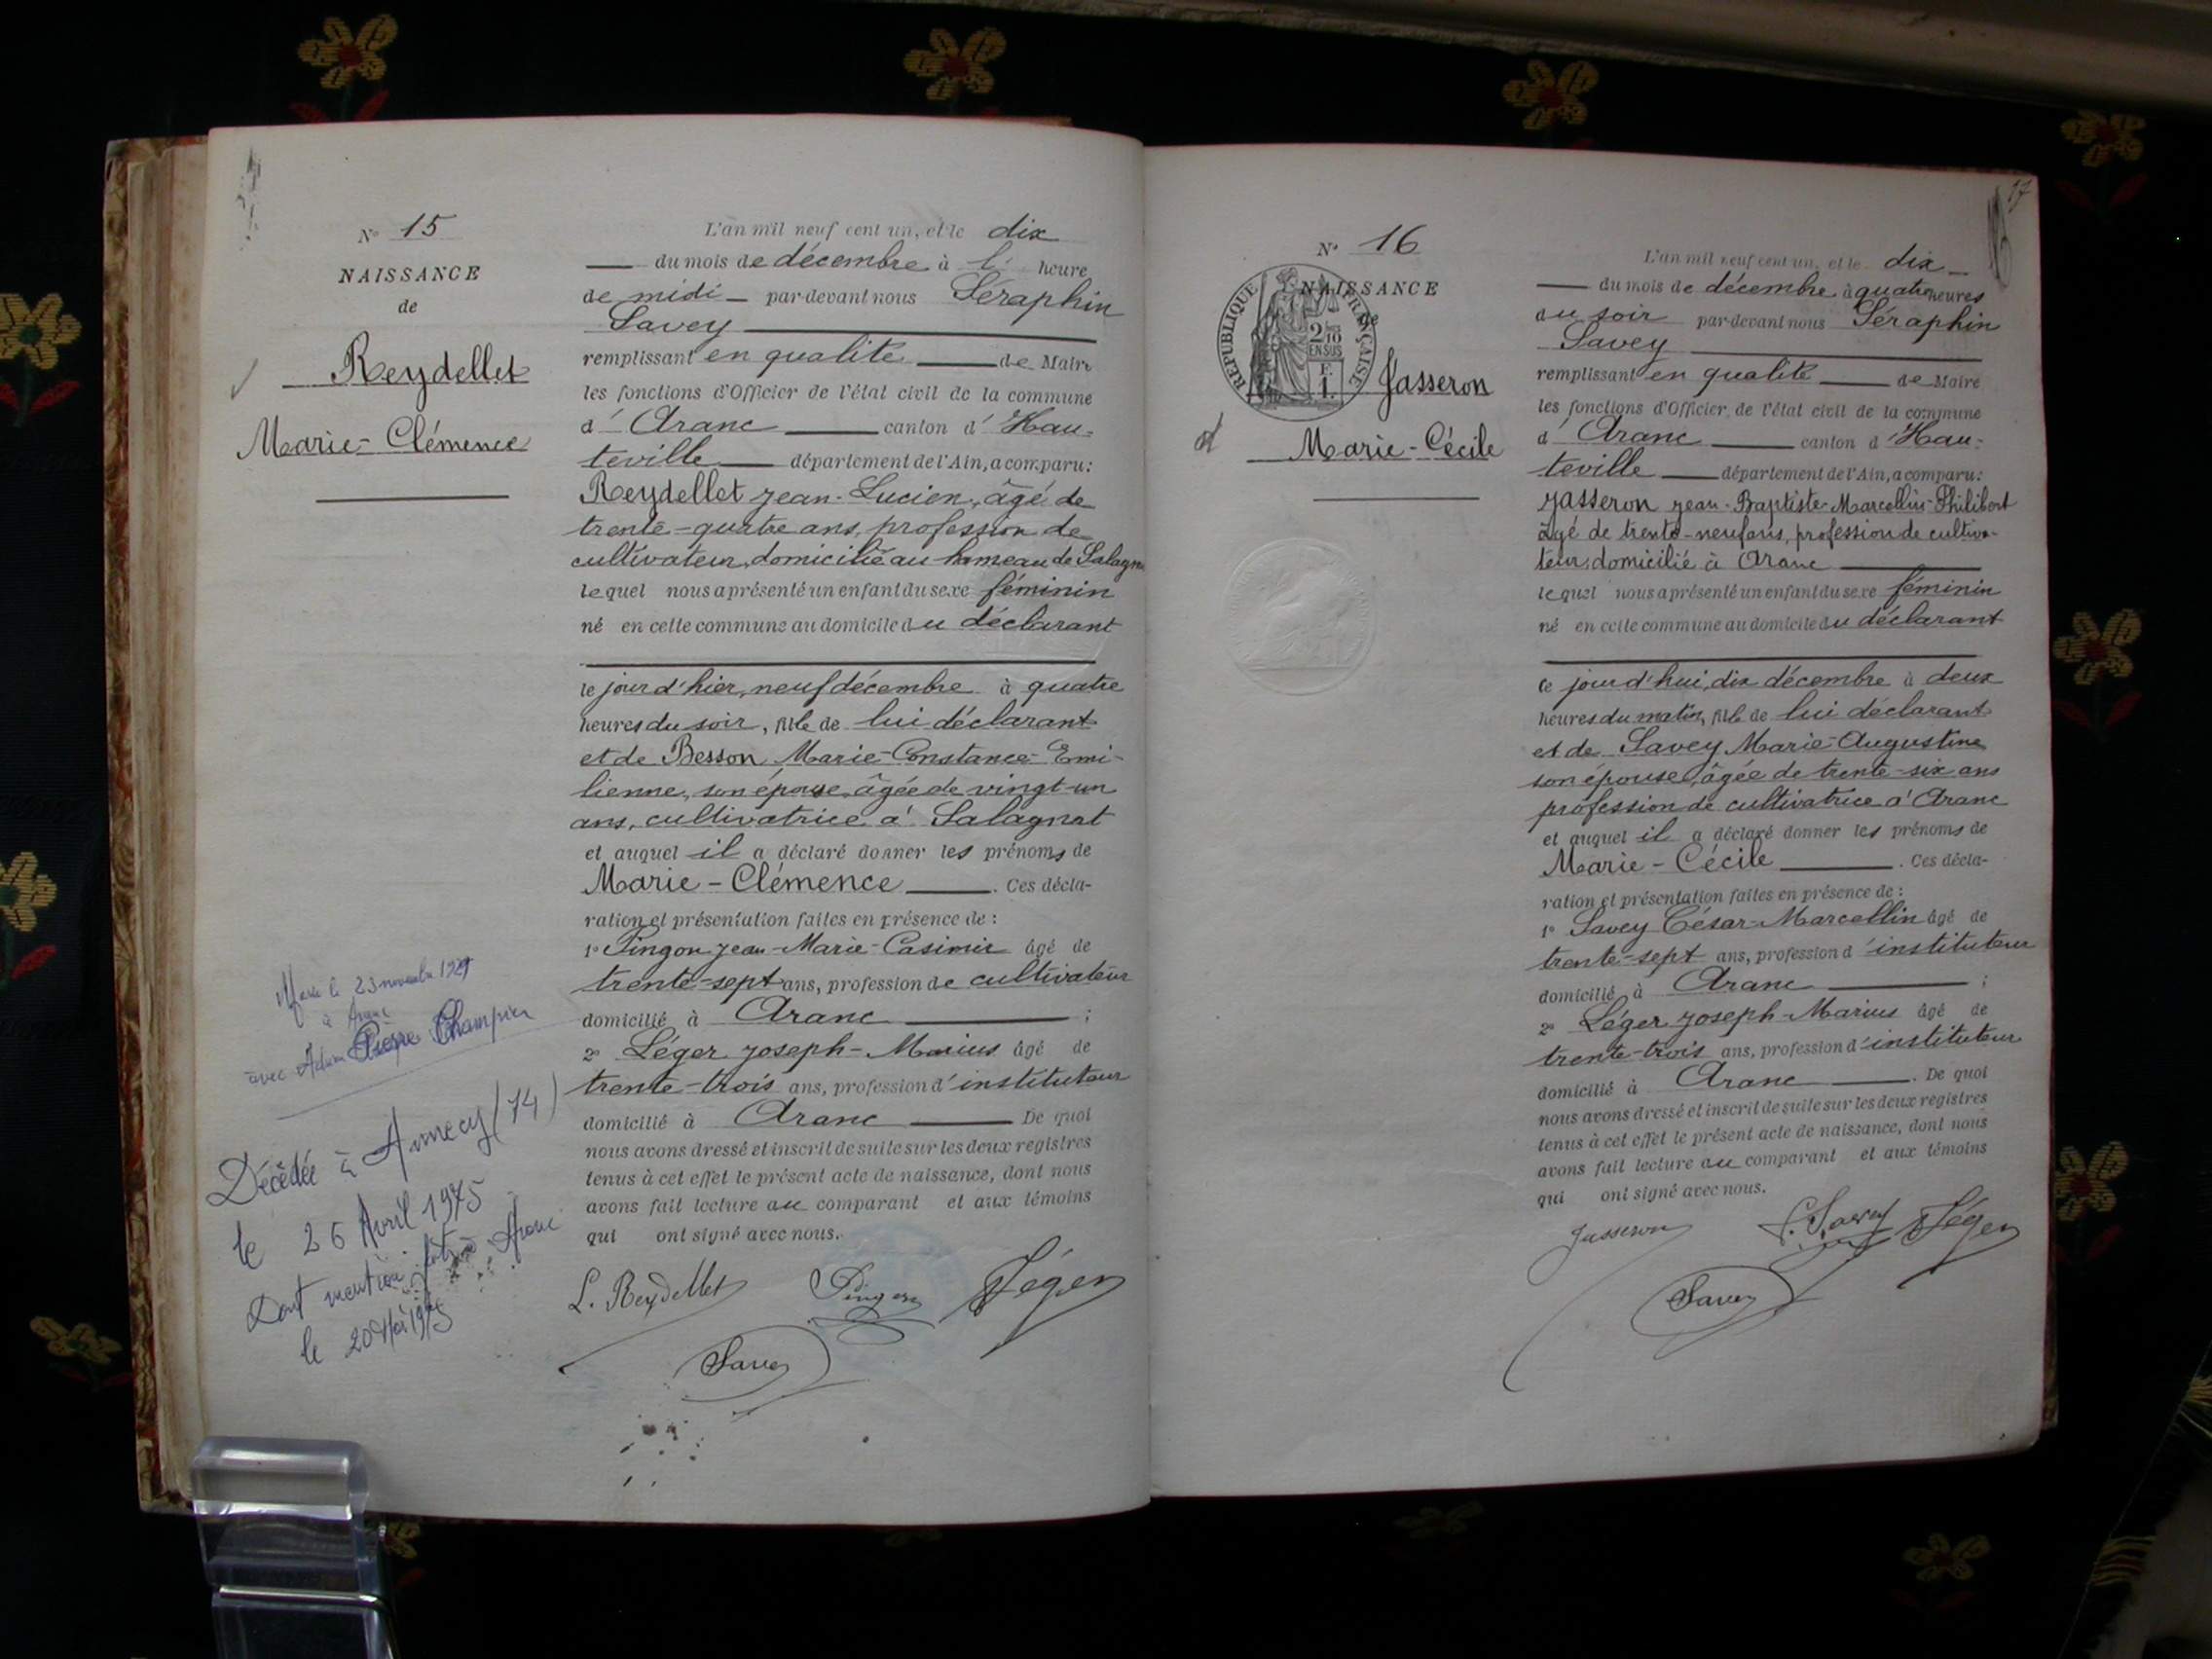 N° 15
NAISSANCE
de
Reydellet
Marie-Clémence
L'an mil neuf cent un, et le dix
du mois de décembre à l' heure
de midi par-devant nous Séraphin
Savey
remplissant en qualité de Maire
les fonctions d'Officier de l'état civil de la commune
d' Aranc canton d' Hau-
teville département de l'Ain, a comparu :
Reydellet Jean-Lucien, âgé de
trente-quatre ans, profession de
cultivateur, domicilié au hameau de
lequel nous a présenté un enfant du sexe féminin
né en cette commune au domicile du déclarant
le jour d'hier, neuf décembre à quatre
heures du soir, fille de lui déclarant
et de Besson Marie-Constance-Emi-
lienne, son épouse, âgée de vingt-un
ans, cultivatrice à Salagnat
et auquel il a déclaré donner les prénoms de
Marie-Clémence . Ces décla-
ration et présentation faites en présence de :
1° Pingon Jean-Marie-Casimir âgé de
trente-sept ans, profession de cultivateur
domicilié à Aranc ;
2° Léger Joseph-Marius âgé de
trente-trois ans, profession d'instituteur
domicilié à Aranc De quoi
nous avons dressé et inscrit de suite sur les deux registres
tenus à cet effet le présent acte de naissance, dont nous
avons fait lecture au comparant et aux témoins
qui ont signé avec nous.
L. Reydellet Pingon Léger
Savey
le 23 novembre
à Aranc
avec Champier
Décédée à Annecy (74)
le 26 Avril 1975
Dont mention Aranc
le 20 Mai 1975
17
N° 16
NAISSANCE
de
REPUBLIQUE FRANÇAISE
2/10
EN SUS
F.
1.
Jasseron
Marie-Cécile
L'an mil neuf cent un, et le dix
du mois de décembre à quatre heures
du soir par-devant nous Séraphin
Savey
remplissant en qualité de Maire
les fonctions d'Officier de l'état civil de la commune
d' Aranc canton d' Hau-
teville département de l'Ain, a comparu :
Jasseron Jean-Baptiste-Marcellin-Philibert
âgé de trente-neuf ans, profession de cultiva-
teur, domicilié à Aranc
lequel nous a présenté un enfant du sexe féminin
né en cette commune au domicile du déclarant
ce jour d'hui, dix décembre à deux
heures du matin, fille de lui déclarant
et de Savey Marie-Augustine
son épouse, âgée de trente-six ans
profession de cultivatrice à Aranc
et auquel il a déclaré donner les prénoms de
Marie-Cécile . Ces décla-
ration et présentation faites en présence de :
1° Savey César-Marcellin âgé de
trente-sept ans, profession d'instituteur
domicilié à Aranc ;
2° Léger Joseph-Marius âgé de
trente-trois ans, profession d'instituteur
domicilié à Aranc . De quoi
nous avons dressé et inscrit de suite sur les deux registres
tenus à cet effet le présent acte de naissance, dont nous
avons fait lecture au comparant et aux témoins
qui ont signé avec nous.
Jasseron Savey Léger
Savey